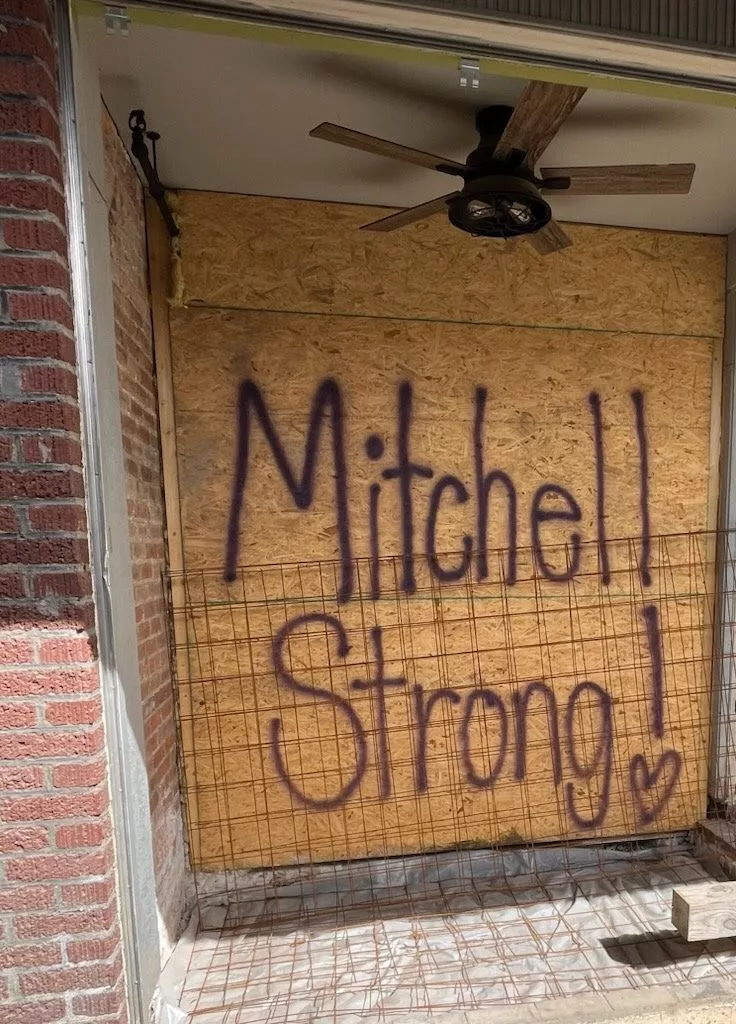 Mitchell
Strong!